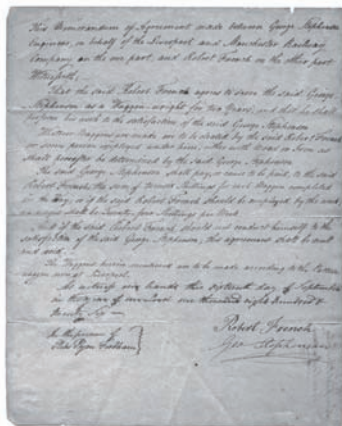 This Memorandum of Agreement made between George Stephenson
Engineer, on behalf of the Liverpool and Manchester Railway
Company on the one part, and Robert French on the other part
Witnesseth,
That the said Robert French agrees to serve the said George
Stephenson as a Waggon-wright for two Years, and that he shall
perform his work to the satisfaction of the said George Stephenson
Waggons are made or to be by the said Robert French
or person employed under him, either with Wood or Iron as
shall hereafter be determined by the said George Stephenson
The said George Stephenson shall pay, or cause to be paid, to the said
Robert French, the sum of Shillings for each Waggon completed
or if the said Robert French should be employed by the
wages shall be Twenty four Shillings per Week
And if the said Robert French should not conduct himself to the
satisfaction of the said George Stephenson, this agreement shall be null
and void.
The Waggons herein mentioned are to be made according to the Pattern
waggon now at Liverpool.
As witness our hands this sixteenth day of September
in the year of our Lord one thousand eight hundred &
twenty six
In the presence of
Robert French
Geo Stephenson